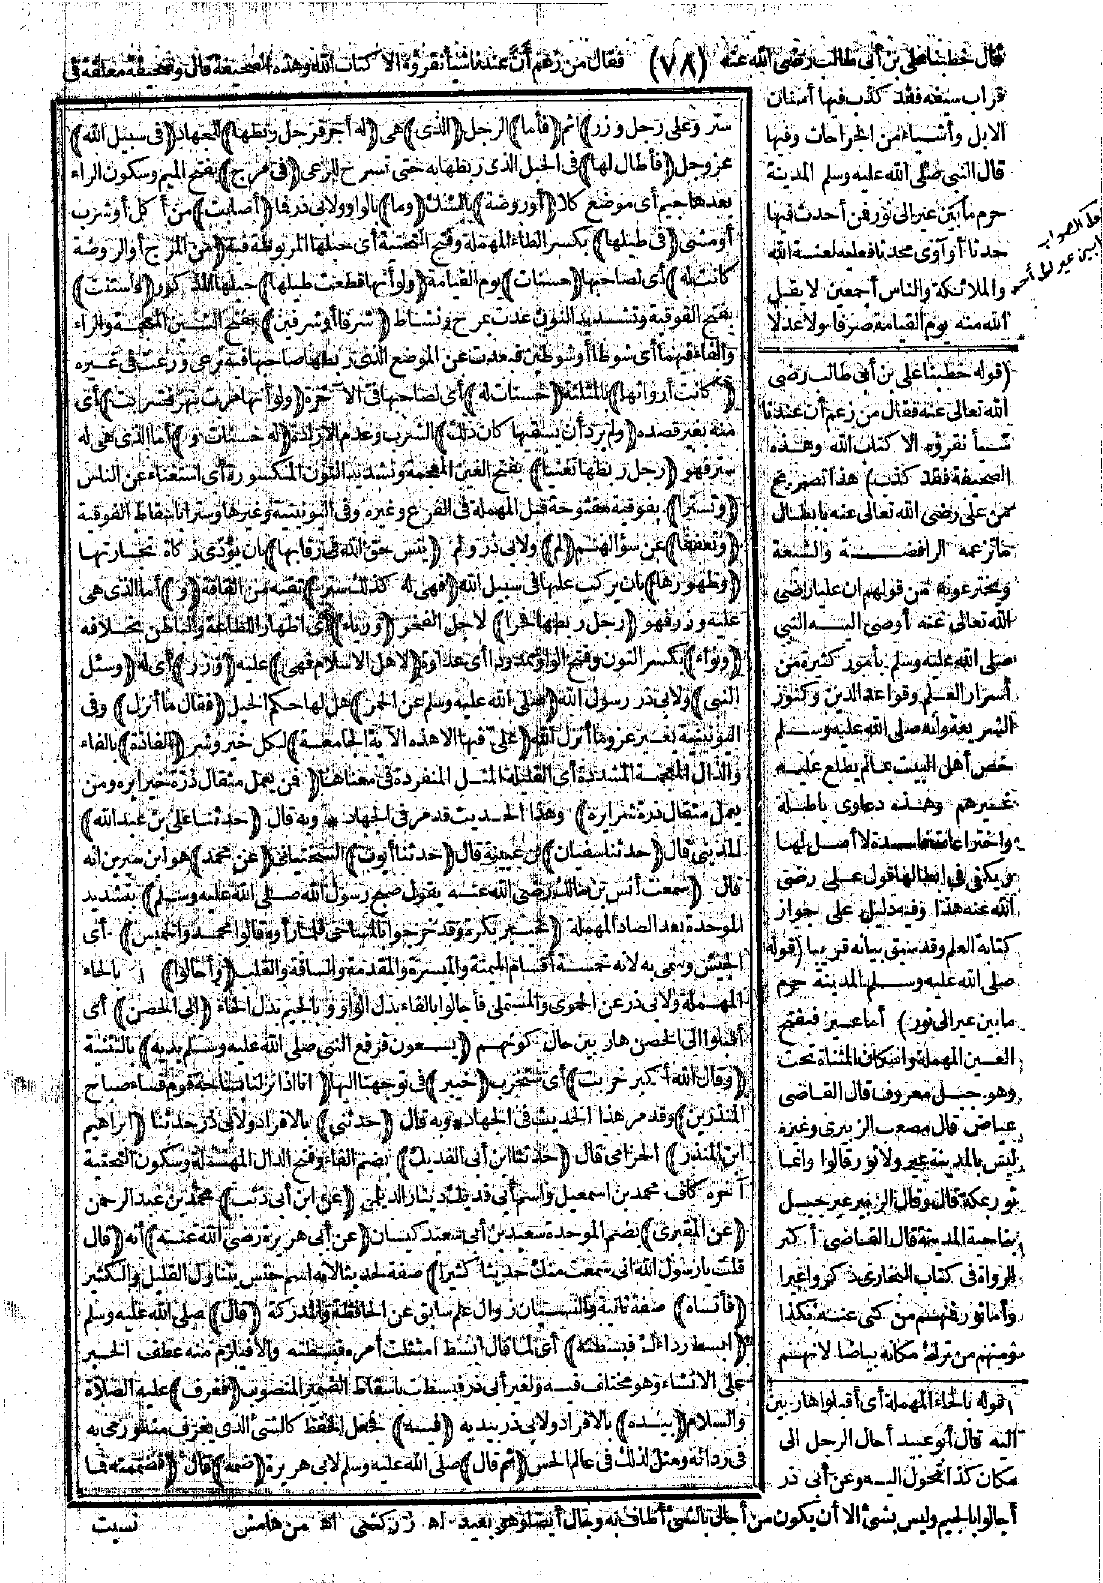 قال خطبنا علي بن أبي طالب رضي الله عنه (٧٨) فقال من زعم أن عندنا شيأ نقرؤه الا كتاب الله وهذه الصحيفة قال وصحيفة معلقة في
قراب سيفه فقد كذب فيها أسنان
الابل وأشياء من الجراحات وفيها
قال النبي صلى الله عليه وسلم المدينة
حرم ما بين عير الى ثور فمن أحدث فيها
حدثا أو آوى محدثا فعليه لعنة الله
والملائكة والناس أجمعين لا يقبل
الله منه يوم القيامة صرفا ولا عدلا
لعل الصواب
ما بين عير الى أحد
(قوله خطبنا علي بن أبي طالب رضي
الله تعالى عنه فقال من زعم أن عندنا
شيأ نقرؤه الا كتاب الله وهذه
الصحيفة فقد كذب) هذا تصريح
من علي رضي الله تعالى عنه بابطال
ما تزعمه الرافضة والشيعة
ويخترعونه من قولهم ان عليا رضي
الله تعالى عنه أوصى اليه النبي
صلى الله عليه وسلم بأمور كثيرة من
أسرار العلم وقواعد الدين وكنوز
الشريعة وانه صلى الله عليه وسلم
خص أهل البيت بما لم يطلع عليه
غيرهم وهذه دعاوى باطلة
واختراعات فاسدة لا أصل لها
ويكفي في ابطالها قول علي رضي
الله عنه هذا وفيه دليل على جواز
كتابة العلم وقد سبق بيانه قريبا (قوله
صلى الله عليه وسلم المدينة حرم
ما بين عير الى ثور) أما عير فبفتح
العين المهملة واسكان المثناة تحت
وهو جبل معروف قال القاضي
عياض قال مصعب الزبيري وغيره
ليس بالمدينة عير ولا ثور قالوا وانما
ثور بمكة قال وقال الزبير عير جبل
بناحية المدينة قال القاضي أكثر
الرواة في كتاب البخاري ذكروا عيرا
وأما ثور فمنهم من كنى عنه بكذا
ومنهم من ترك مكانه بياضا لانهم
سترو على رجل وزر) ثم (فأما) الرجل (الذي) هي (له أجر فرجل ربطها) للجهاد (في سبيل الله)
عز وجل (فأطال لها) في الحبل الذي ربطها به حتى تسرح للرعي (في مرج) بفتح الميم وسكون الراء
بعدها جيم أي موضع كلا (أو روضة) بالشك (وما) بالواو ولابي ذر فما (أصابت) من أكل أو شرب
أو مشى (في طيلها) بكسر الطاء المهملة وفتح التحتية أي حبلها المربوطة فيه (من المرج أو الروضة
كانت له) أي لصاحبها (حسنات) يوم القيامة (ولو أنها قطعت طيلها) حبلها المذكور (فاستنت)
بفتح الفوقية وتشديد النون عدت بمرح ونشاط (شرفا أو شرفين) بفتح الشين المعجمة والراء
والفاء فيهما أي شوطا أو شوطين فبعدت عن الموضع الذي ربطها صاحبها فيه ترعى ورعت في غيره
(كانت أرواثها) بالمثلثة (حسنات له) أي لصاحبها في الآخرة (ولو أنها مرت بنهر فشربت) أي
منه بغير قصده (ولم يرد أن يسقيها كان ذلك) الشرب وعدم الارادة (له حسنات و) أما الذي هي له
ستر فهو (رجل ربطها تغنيا) بفتح الغين المعجمة وتشديد النون المكسورة أي استغناء عن الناس
(وتسترا) بفوقية مفتوحة قبل المهملة في الفرع وغيره وفي اليونينية وغيرها وسترا باسقاط الفوقية
(وتعففا) عن سؤالهم (لم) ولابي ذر ولم (ينس حق الله في رقابها) بان يؤدي زكاة تجارتها
(وظهورها) بان يركب عليها في سبيل الله (فهي له كذلك ستر) تقيه من الفاقة (و) أما الذي هي
عليه وزر فهو (رجل ربطها فخرا) لاجل الفخر (ورياء) أي اظهار الطاعة والباطن بخلافه
(ونواء) بكسر النون وفتح الواو ممدودا أي عداوة (لاهل الاسلام فهي) عليه (وزر) أي له (وسئل
النبي) ولابي ذر رسول الله (صلى الله عليه وسلم عن الحمر) هل لها حكم الخيل (فقال ما أنزل) وفي
اليونينية بغير عزو ما أنزل الله (علي فيها الا هذه الآية الجامعة) لكل خير وشر (الفاذة) بالفاء
والذال المعجمة المشددة أي القليلة المثل المنفردة في معناها (فمن يعمل مثقال ذرة خيرا يره ومن
يعمل مثقال ذرة شرا يره) وهذا الحديث قد مر في الجهاد * وبه قال (حدثنا علي بن عبد الله)
المديني قال (حدثنا سفيان) بن عيينة قال (حدثنا أيوب) السختياني (عن محمد) هو ابن سيرين انه
قال (سمعت أنس بن مالك رضي الله عنه يقول صبح رسول الله صلى الله عليه وسلم) بتشديد
الموحدة بعد الصاد المهملة (خيبر بكرة وقد خرجوا بالمساحي فلما رأوه قالوا محمد والخميس) أي
الجيش وسمي به لانه خمسة أقسام الميمنة والميسرة والمقدمة والساقة والقلب (وأحالوا) بالحاء
المهملة ولابي ذر عن الحموي والمستملي فأجالوا بالفاء بدل الواو وبالجيم بدل الحاء (الى الحصن) أي
أقبلوا الى الحصن هاربين حال كونهم (يسعون فرفع النبي صلى الله عليه وسلم يديه) بالتثنية
(وقال الله أكبر خربت) أي ستخرب (خيبر) في توجهنا اليها (انا اذا نزلنا بساحة قوم فساء صباح
المنذرين) وقد مر هذا الحديث في الجهاد * وبه قال (حدثني) بالافراد ولابي ذر حدثنا (ابراهيم
ابن المنذر) الحزامي قال (حدثنا ابن أبي الفديك) بضم الفاء وفتح الدال المهملة وسكون التحتية
آخره كاف محمد بن اسمعيل واسم أبي فديك دينار الديلي (عن ابن أبي ذئب) محمد بن عبد الرحمن
(عن المقبري) بضم الموحدة سعيد بن أبي سعيد كيسان (عن أبي هريرة رضي الله عنه) أنه (قال
قلت يا رسول الله اني سمعت منك حديثا كثيرا) صفة لحديثا لانه اسم جنس يتناول القليل والكثير
(فأنساه) صفة ثانية والنسيان زوال علم سابق عن الحافظة والمدركة (قال) صلى الله عليه وسلم
(ابسط رداءك فبسطته) أي لما قال ابسط امتثلت أمره فبسطته والا فيلزم منه عطف الخبر
على الانشاء وهو مختلف فيه ولغير أبي ذر فبسطت باسقاط الضمير المنصوب (فغرف) عليه الصلاة
والسلام (بيده) بالافراد ولابي ذر بيديه (فيه) فجعل الحفظ كالشئ الذي يغرف منه ورمى به
في ردائه ومثل لذلك في عالم الحس (ثم قال) صلى الله عليه وسلم لابي هريرة (ضمه) قال (فضممته فما
نسيت
(قوله بالحاء المهملة أي أقبلوا هاربين
اليه قال أبو عبيد أحال الرجل الى
مكان كذا تحول اليه وعن أبي ذر
أجالوا بالجيم وليس بشئ الا أن يكون من أجال بالشئ أطاف به وجال أيضا وهو بعيد اه زركشي اه من هامش